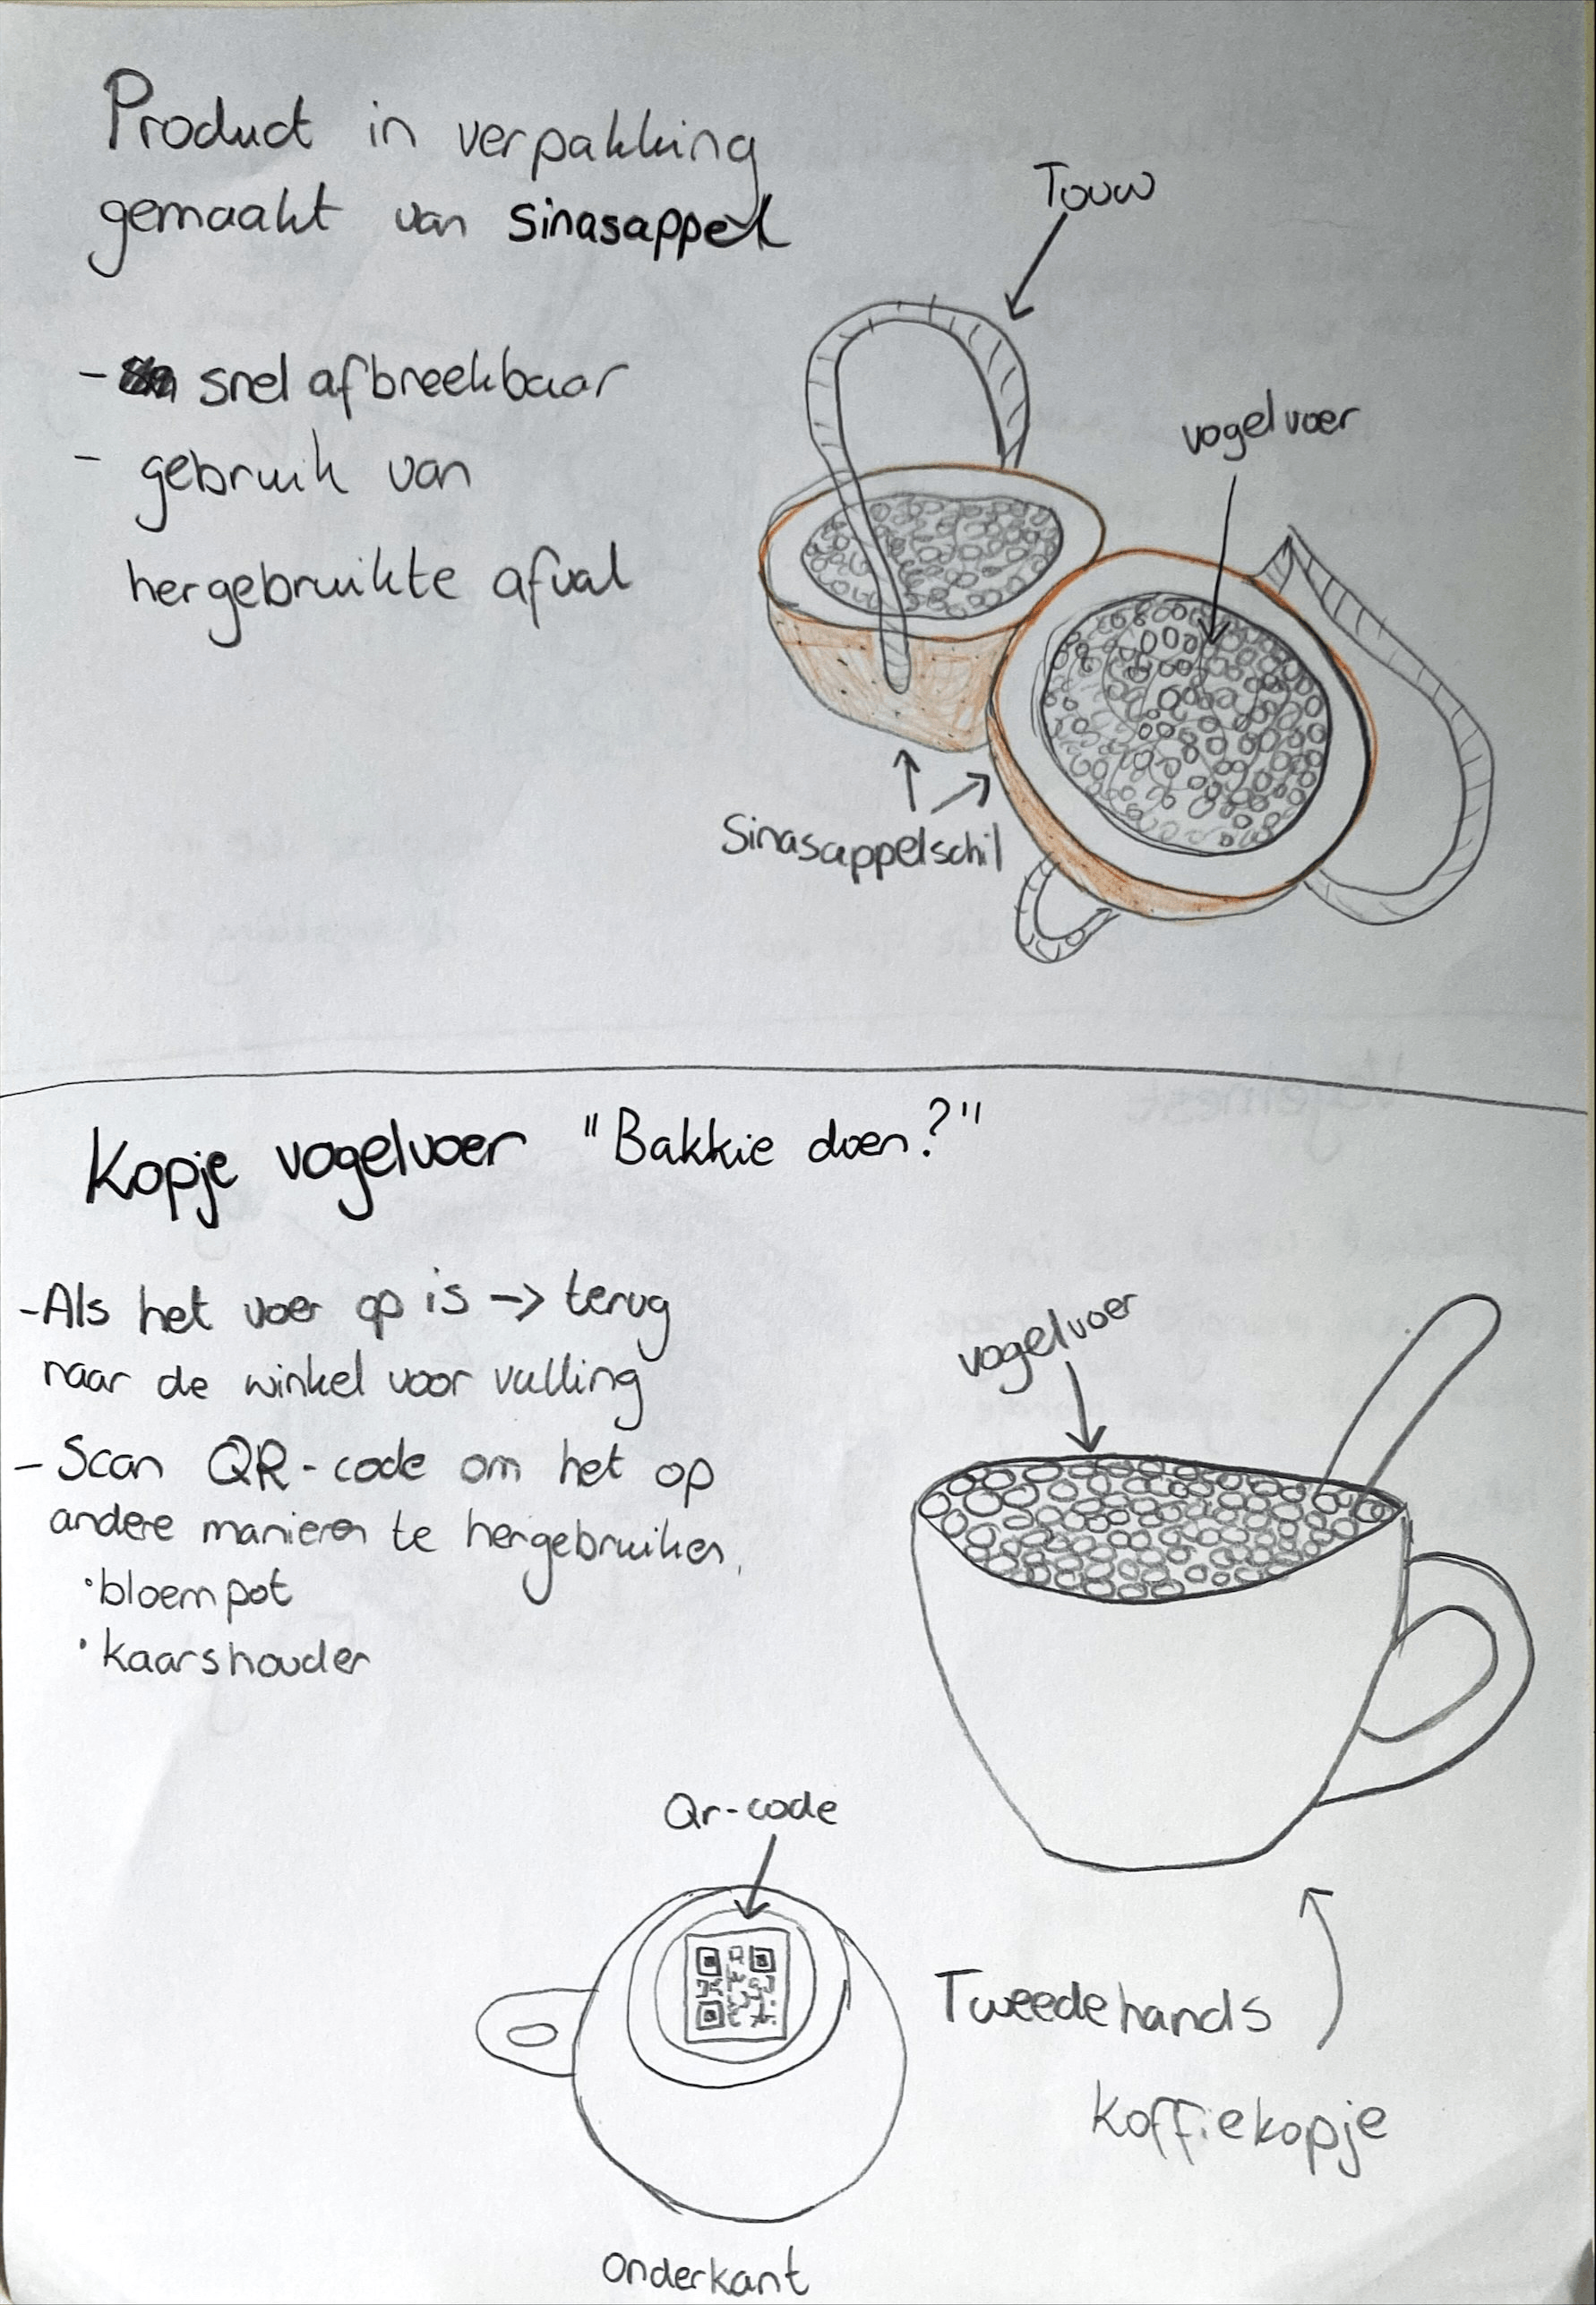 Product in verpakking
gemaakt van sinasappel
- snel afbreekbaar
- gebruik van
hergebruikte afval
Touw
vogelvoer
Sinasappelschil
Kopje vogelvoer "Bakkie doen?"
- Als het voer op is -> terug
naar de winkel voor vulling
- Scan QR-code om het op
andere manieren te hergebruiken.
• bloempot
• kaarshouder
vogelvoer
Qr-code
Tweedehands
koffiekopje
onderkant